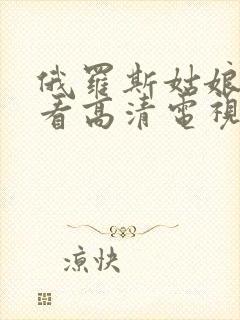 俄羅斯姑娘
看高清電視
凉快